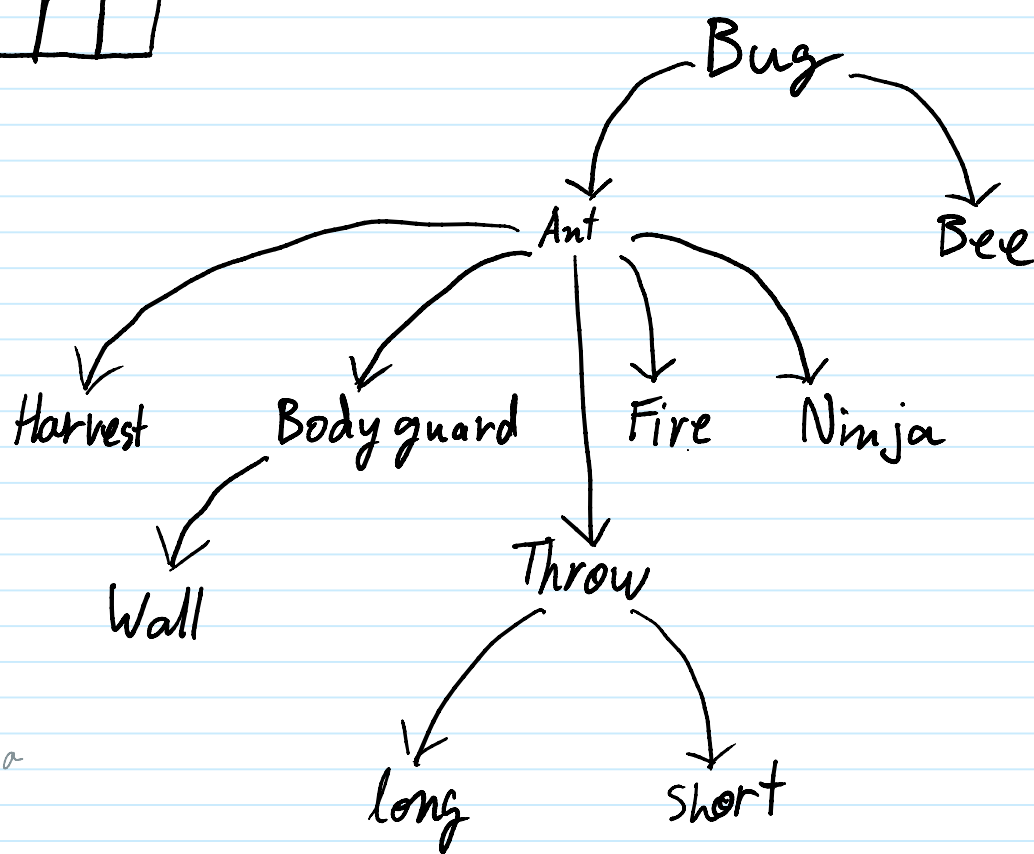 Bug
Ant
Bee
Harvest
Body guard
Fire
Ninja
Throw
Wall
long
short
a